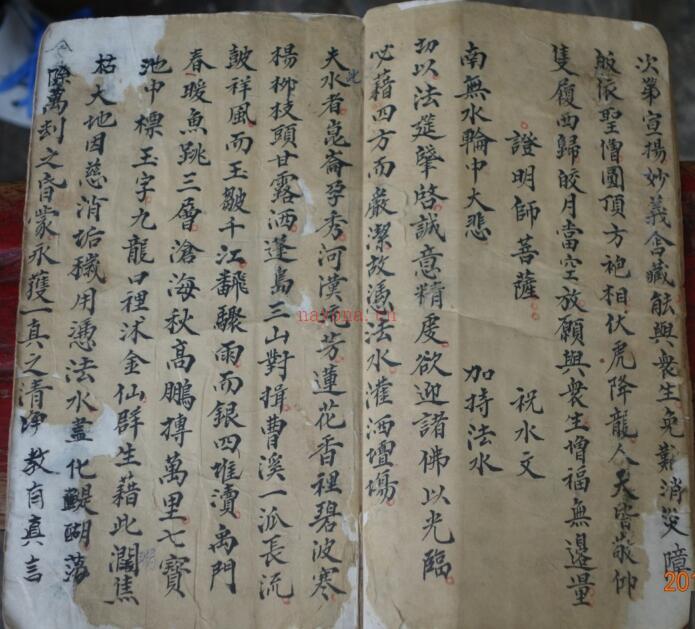 次第宣揚妙義含藏能與衆生免難消災障
皈依聖僧圓頂方袍相伏虎降龍人天皆敬仰
隻履西歸皎月當空放願與衆生增福無邊量
證明師菩薩 祝水文
南無水輪中大悲 加持法水
切以法筵肇啓誠意精虔欲迎諸佛以光臨
必藉四方而嚴潔故憑法水灌洒壇塲
夫此水者崑崙孕秀河漢流芳蓮花香裡碧波寒
楊柳枝頭甘露洒蓬島三山對揖曹溪一派長流
皷祥風而玉皺千江飜驟雨而銀四堆瀆禹門
春暖魚跳三層滄海秋高鵬摶萬里七寶
池中標玉字九龍口裡沐金仙群生藉此潤焦
枯大地因慈消垢穢用憑法水蓋化醍醐蕩
除萬刦之昏蒙永獲一真之清净教有真言
nayona.cn
201